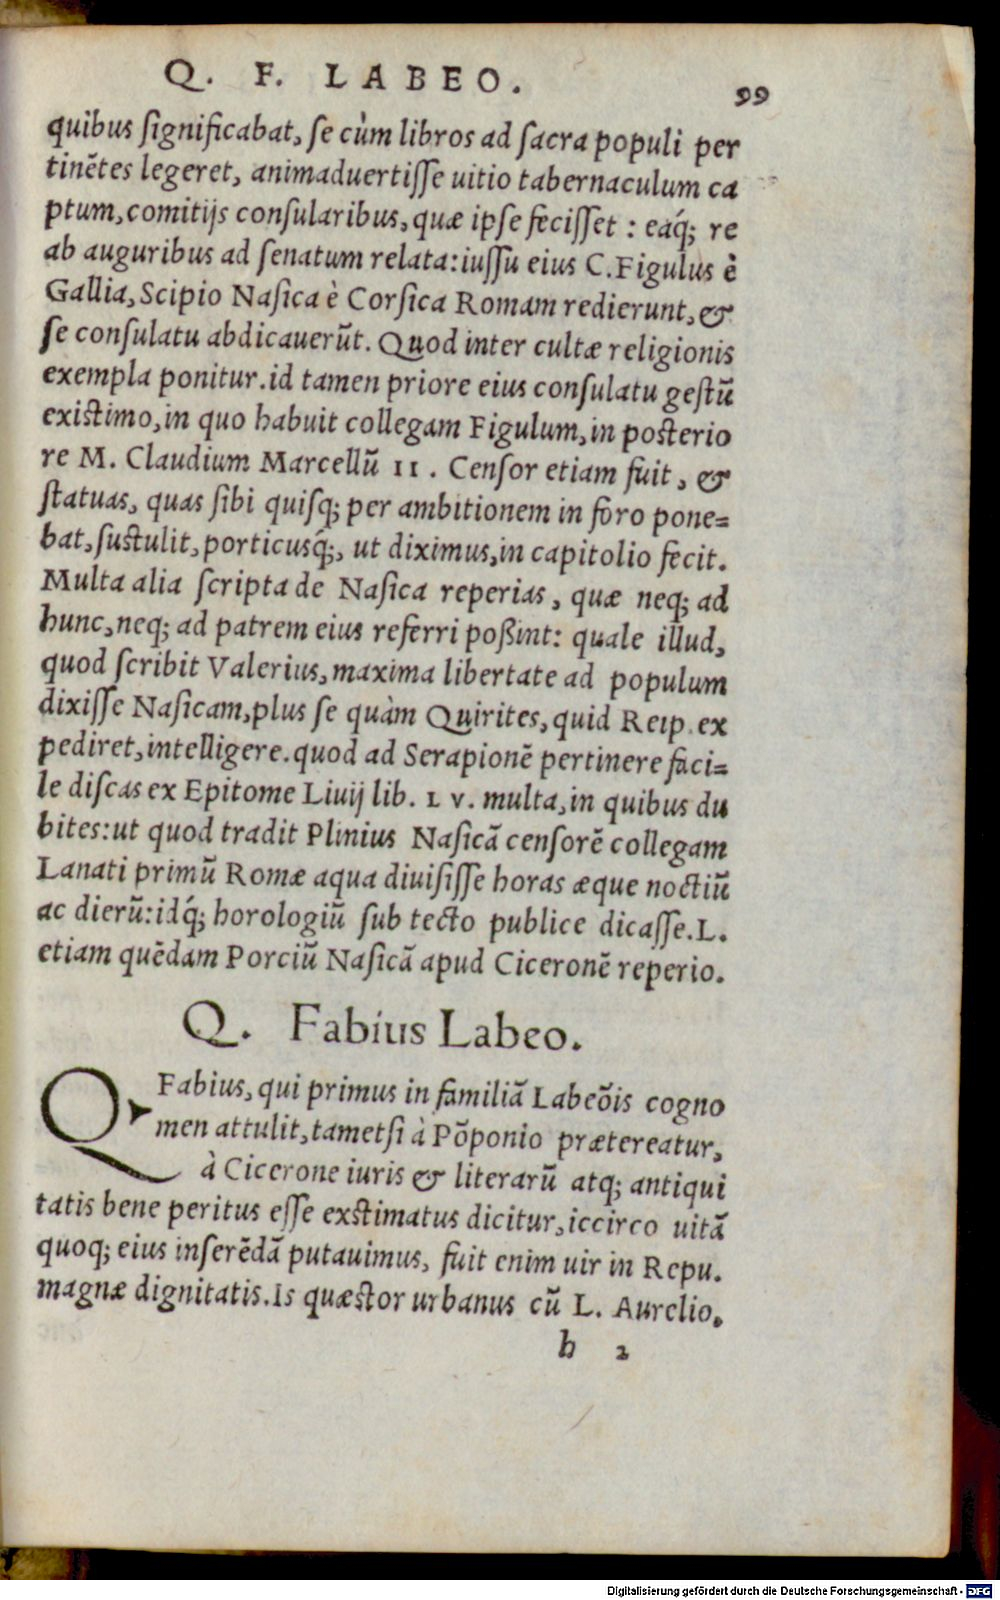 Q. F. LABEO. 99
quibus ſignificabat, ſe cùm libros ad ſacra populi per
tinẽtes legeret, animaduertiſſe uitio tabernaculum ca
ptum, comitijs conſularibus, quæ ipſe feciſſet : eaq́; re
ab auguribus ad ſenatum relata: iuſſu eius C. Figulus è
Gallia, Scipio Naſica è Corſica Romam redierunt, &
ſe conſulatu abdicauerũt. Quod inter cultæ religionis
exempla ponitur. id tamen priore eius conſulatu geſtũ
existimo, in quo habuit collegam Figulum, in posterio
re M. Claudium Marcellũ II. Cenſor etiam fuit, &
ſtatuas, quas ſibi quiſq; per ambitionem in foro pone=
bat, ſustulit, porticusq́;, ut diximus, in capitolio fecit.
Multa alia ſcripta de Naſica reperias, quæ neq; ad
hunc, neq; ad patrem eius referri poßint: quale illud,
quod ſcribit Valerius, maxima libertate ad populum
dixiſſe Naſicam, plus ſe quàm Quirites, quid Reip. ex
pediret, intelligere. quod ad Serapionẽ pertinere faci=
le diſcas ex Epitome Liuij lib. LV. multa, in quibus du
bites: ut quod tradit Plinius Naſicã cenſorẽ collegam
Lanati primũ Romæ aqua diuiſiſſe horas æque noctiũ
ac dierũ: idq́; horologiũ ſub tecto publice dicaſſe. L.
etiam quẽdam Porciũ Naſicã apud Ciceronẽ reperio.
Q. Fabius Labeo.
Q. Fabius, qui primus in familiã Labeõis cogno
men attulit, tametſi à Põponio prætereatur,
à Cicerone iuris & literarũ atq; antiqui
tatis bene peritus eſſe exstimatus dicitur, iccirco uitã
quoq; eius inſerẽdã putauimus, fuit enim uir in Repu.
magnæ dignitatis. Is quæstor urbanus cũ L. Aurelio.
h 2
Digitalisierung gefördert durch die Deutsche Forschungsgemeinschaft - DFG